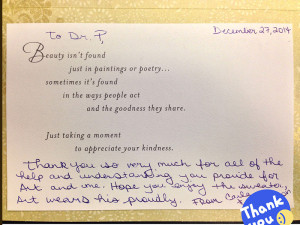 To Dr. P,
December 27, 2014
Beauty isn't found
just in paintings or poetry...
sometimes it's found
in the ways people act
and the goodness they share.
Just taking a moment
to appreciate your kindness.
Thank you so very much for all of the
help and understanding you provide for
Art and me. Hope you enjoy the sweatong
Art wears his proudly. From Carla
Thank
you